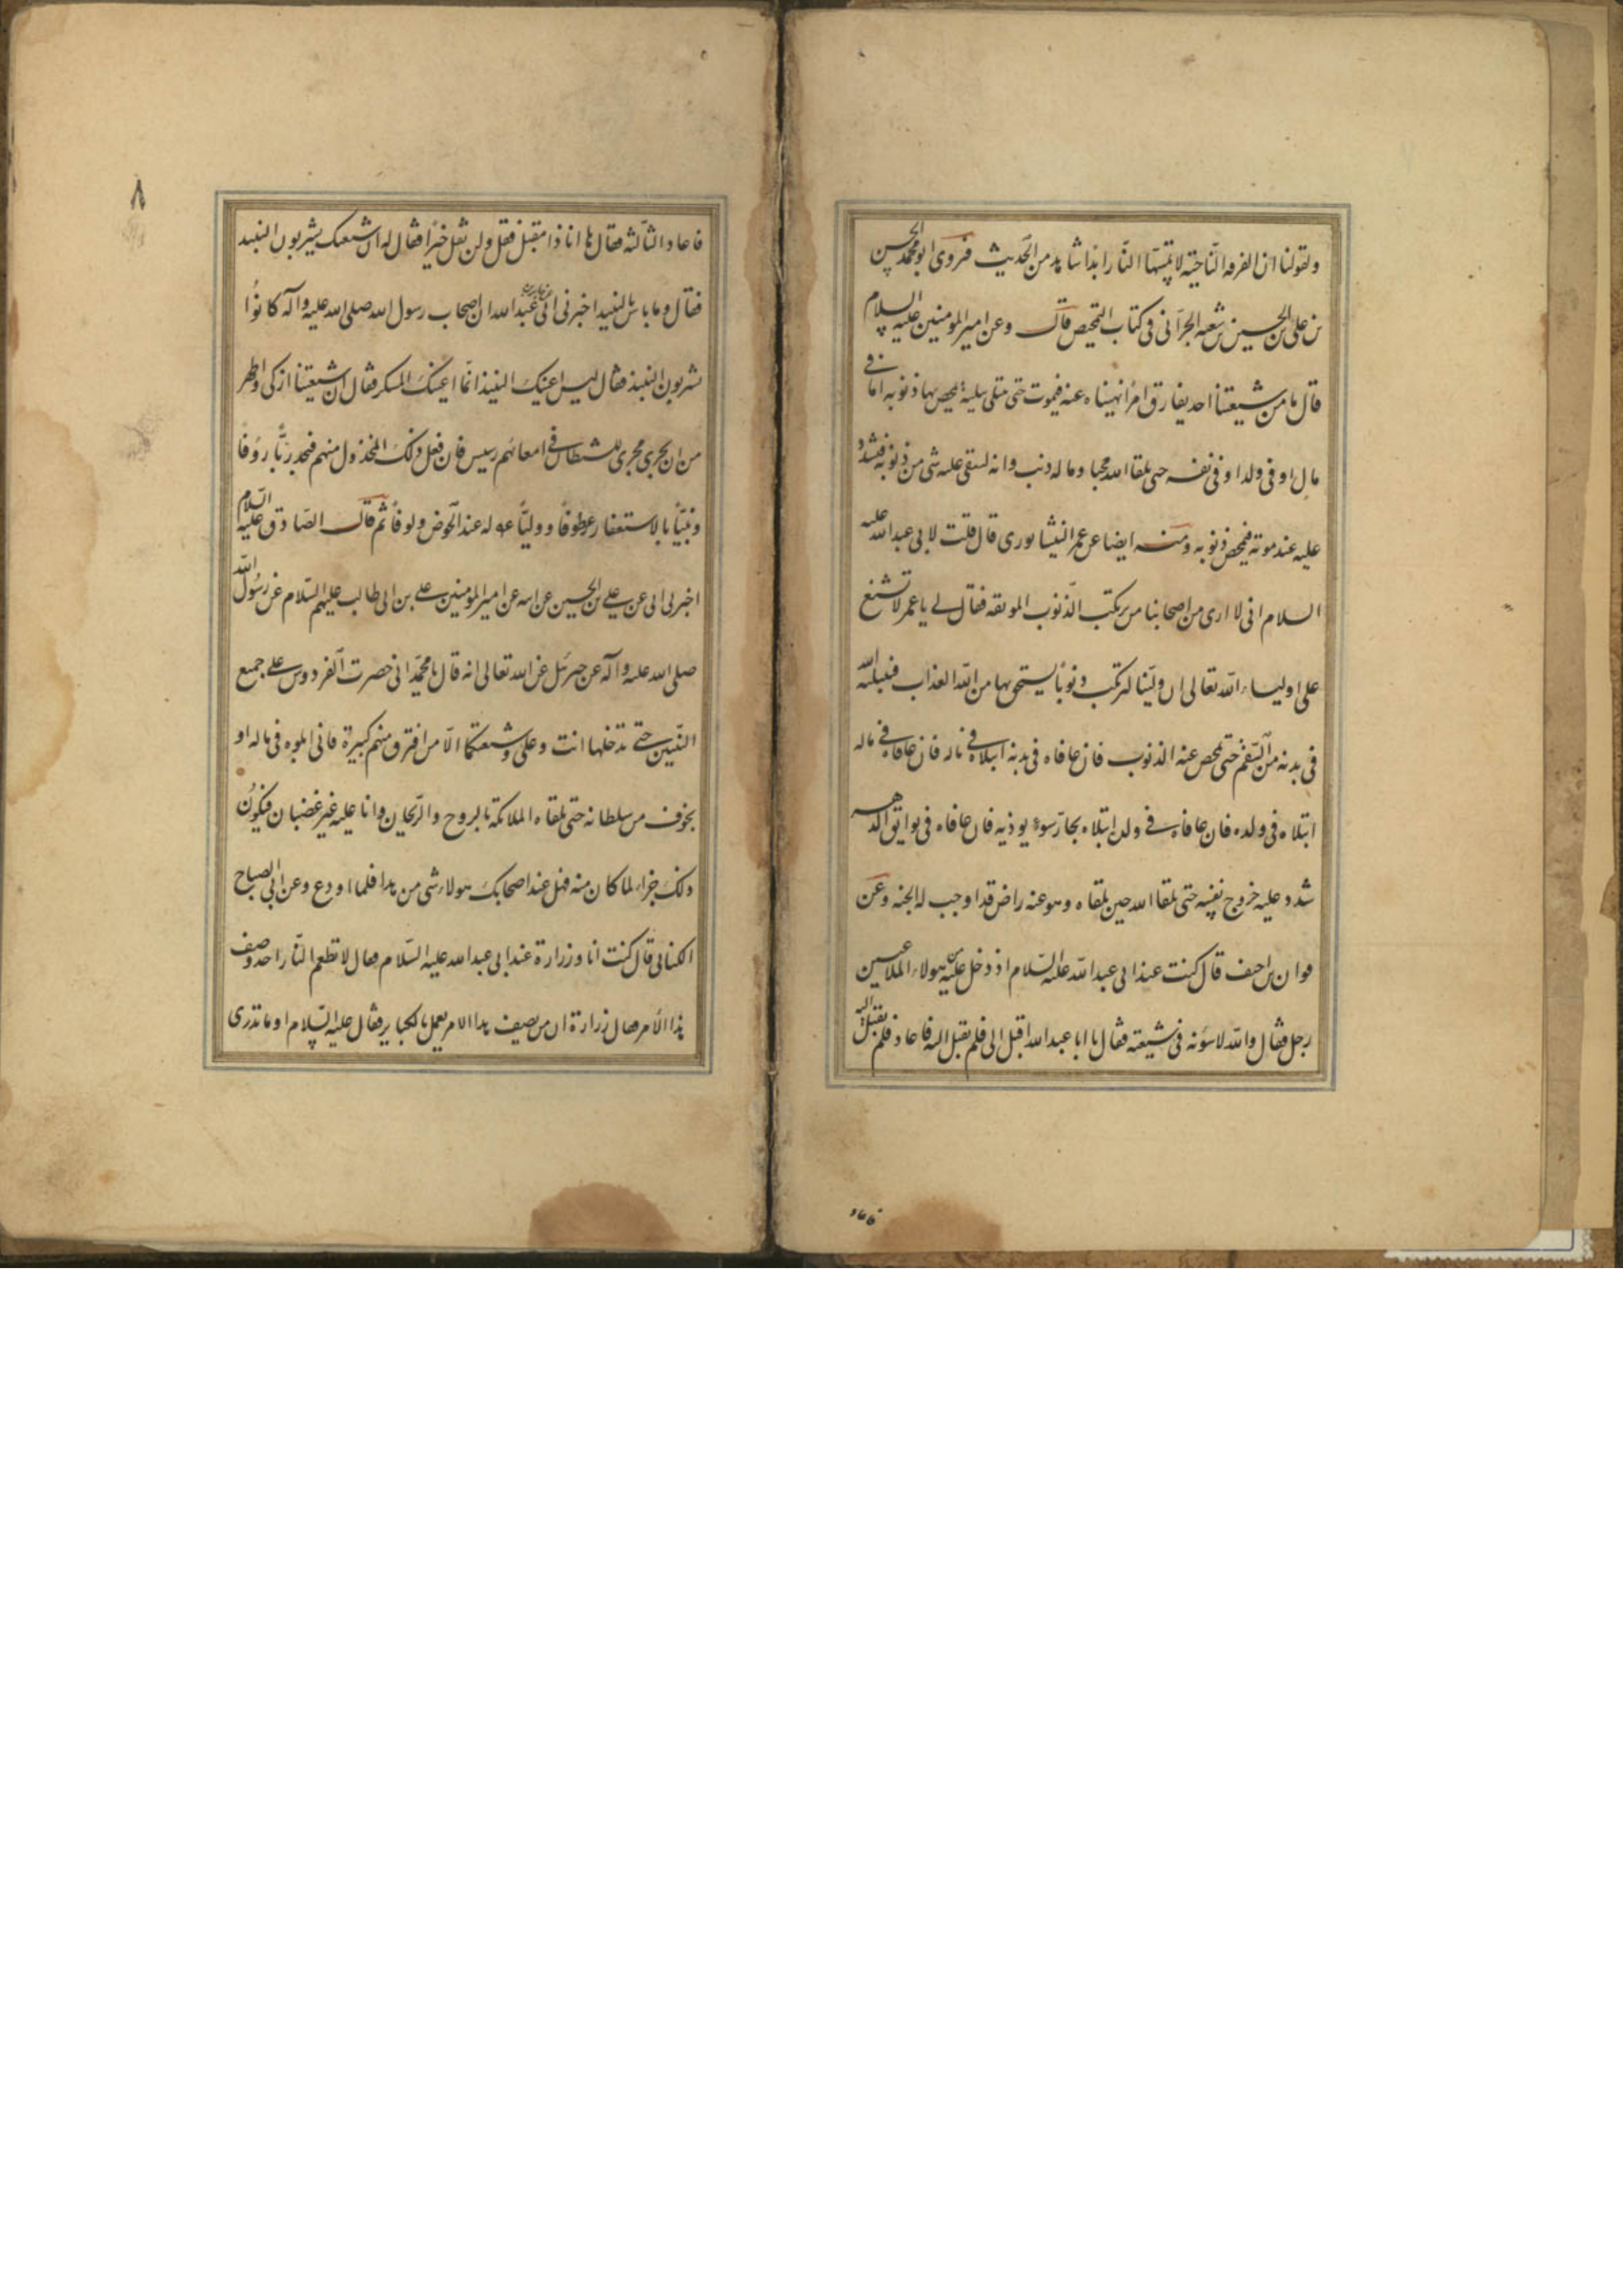 ولقولنا ان الفرقه الناجیّه لا تمسّها النّار ابدا شاهد من الحدیث فروی ابو محمد الحسن
بن علی بن الحسین بن شعبه الحرّانی فی کتاب التمحیص قال وعن امیر المومنین علیه السلام
قال ما من شیعتنا احد یقارق امرًا نهیناه عنه فیموت حتی یبتلی ببلیة یمحص بها ذنوبه اما فی
مال او فی ولد او فی نفسه حتی یلقا الله محبا وما له ذنب وانه لیبقی علیه شی من ذنوبه فیشدد
علیه عند موته فیمحص ذنوبه ومنه ایضا عن عمر النیشابوری قال قلت لابی عبد الله علیه
السلام انی لا اری من اصحابنا من یرتکب الذّنوب الموبقه فقال لی یا عمر لا تشنع
علی اولیاء الله تعالی ان ولیّنا لیرتکب ذنوبًا یستحق بها من الله العذاب فیبتلیه الله
فی بدنه من السّقم حتی تمحص عنه الذنوب فان عافاه فی بدنه ابتلاه فی ماله فان عافاه فی ماله
ابتلاه فی ولده فان عافاه فی ولده ابتلاه بجار سوء یوذیه فان عافاه فی بوایق الدهر
شدد علیه خروج نفسه حتی یلقا الله حین یلقاه وهو عنه راض قد اوجب له الجنه وعن
بن احنف قال کنت عند ابی عبد الله علیه السّلام اذ دخل علیه من هولاء الملاعین
رجل فقال والله لاسوئنه فی شیعته فقال یا ابا عبد الله اقبل الی فلم یقبل الیه فاعاد فلم یقبل الیه
فاعاد الثالثه فقال ها انا ذا مقبل فقل ولن تقل خیرا فقال له ان شیعتک یشربون النبید
فقال وما باس بالنبید اخبرنی ابی عن جابر بن عبد الله ان اصحاب رسول الله صلی الله علیه وآله کانوا
یشربون النبید فقال لیس اعنیک النبید انما اعنیک المسکر فقال ان شیعتنا ازکی واطهر
من ان یجری مجری للشیطان فی امعائهم رسیس فان فعل ذلک المخذول منهم فیجد ربّا رؤفا
ونبیّا بالاستغفار عطوفا وولیّا له عند الحوض ولوفا ثم قال الصّادق علیه السّلام
اخبرنی ابی عن علی بن الحسین عن ابیه عن امیر المومنین علی بن ابی طالب علیهم السّلام عن رسول الله
صلی الله علیه وآله عن جبرئیل عن الله تعالی انه قال یا محمد انی حضرت الفردوس علی جمیع
النّبیین حتی تدخلها انت وعلی وشیعتکما الّا من اقترف منهم کبیرة فانی ابلوه فی ماله او
بخوف من سلطانه حتی یلقاه الملائکة بالروح والرّیحان وانا علیه غیر غضبان فیکون
ذلک جزاء لما کان منه فهل عند اصحابک هولاء شی من هذا فلما او دع وعن ابی الصباح
الکنانی قال کنت انا وزرارة عند ابی عبد الله علیه السّلام فقال لا تطعم النّار احد وصف
هذا الامر فقال زرارة ان من یصف هذا الامر یعمل بالکبایر فقال علیه السّلام او ما تدری
فاعاد
٨